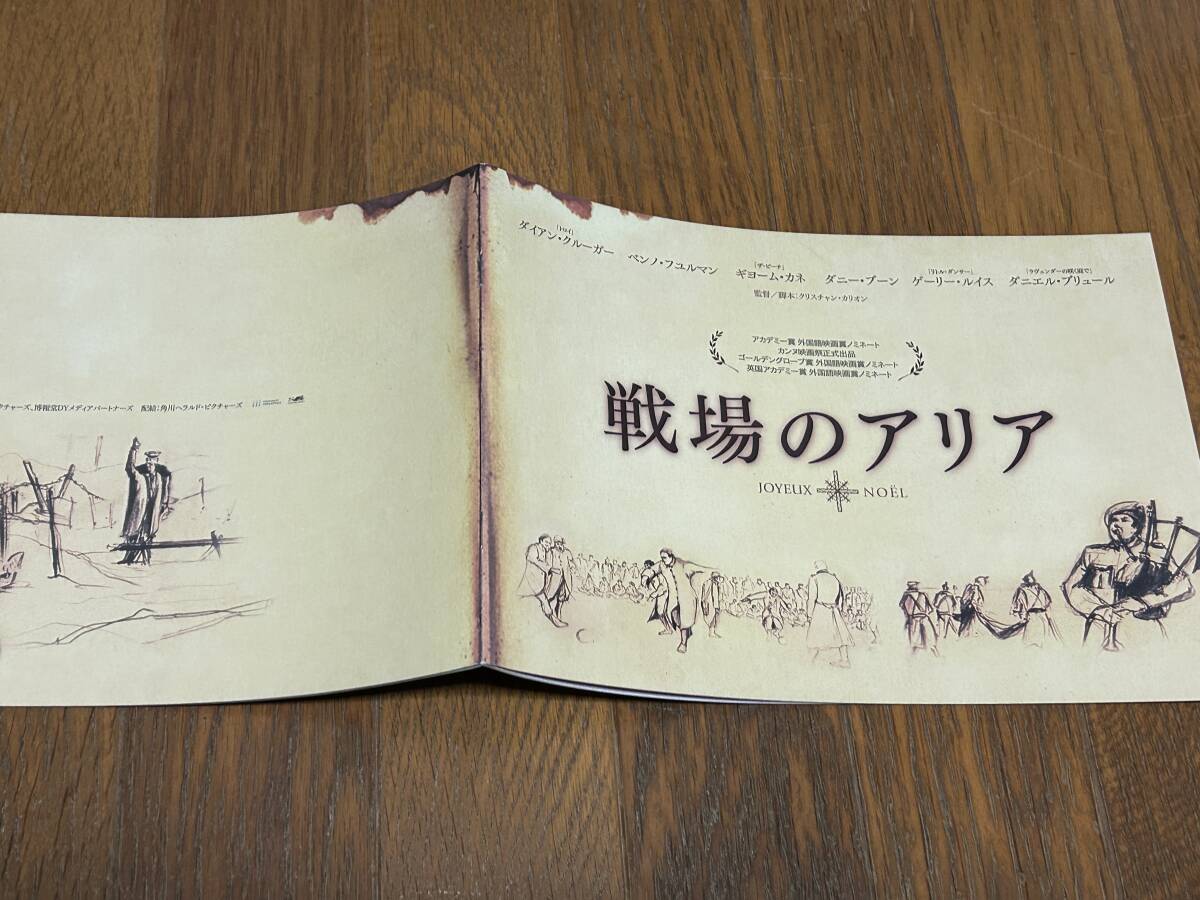 クチャーズ、博報堂DYメディアパートナーズ 配給:角川ヘラルド・ピクチャーズ
『トロイ』
ダイアン・クルーガー ベンノ・フユルマン
『ザ・ビーチ』 『リトル・ダンサー』 『ラヴェンダーの咲く庭で』
ギヨーム・カネ ダニー・ブーン ゲーリー・ルイス ダニエル・ブリュール
監督/脚本:クリスチャン・カリオン
アカデミー賞 外国語映画賞ノミネート
カンヌ映画祭正式出品
ゴールデングローブ賞 外国語映画賞ノミネート
英国アカデミー賞 外国語映画賞ノミネート
戦場のアリア
JOYEUX NOËL